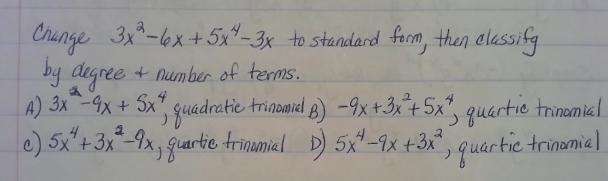 Change 3x²-6x + 5x⁴-3x to standard form, then classify
by degree + number of terms.
A) 3x²-9x + 5x⁴, quadratic trinomial B) -9x+3x²+5x⁴, quartic trinomial
C) 5x⁴+3x²-9x, quartic trinomial D) 5x⁴-9x+3x², quartic trinomial